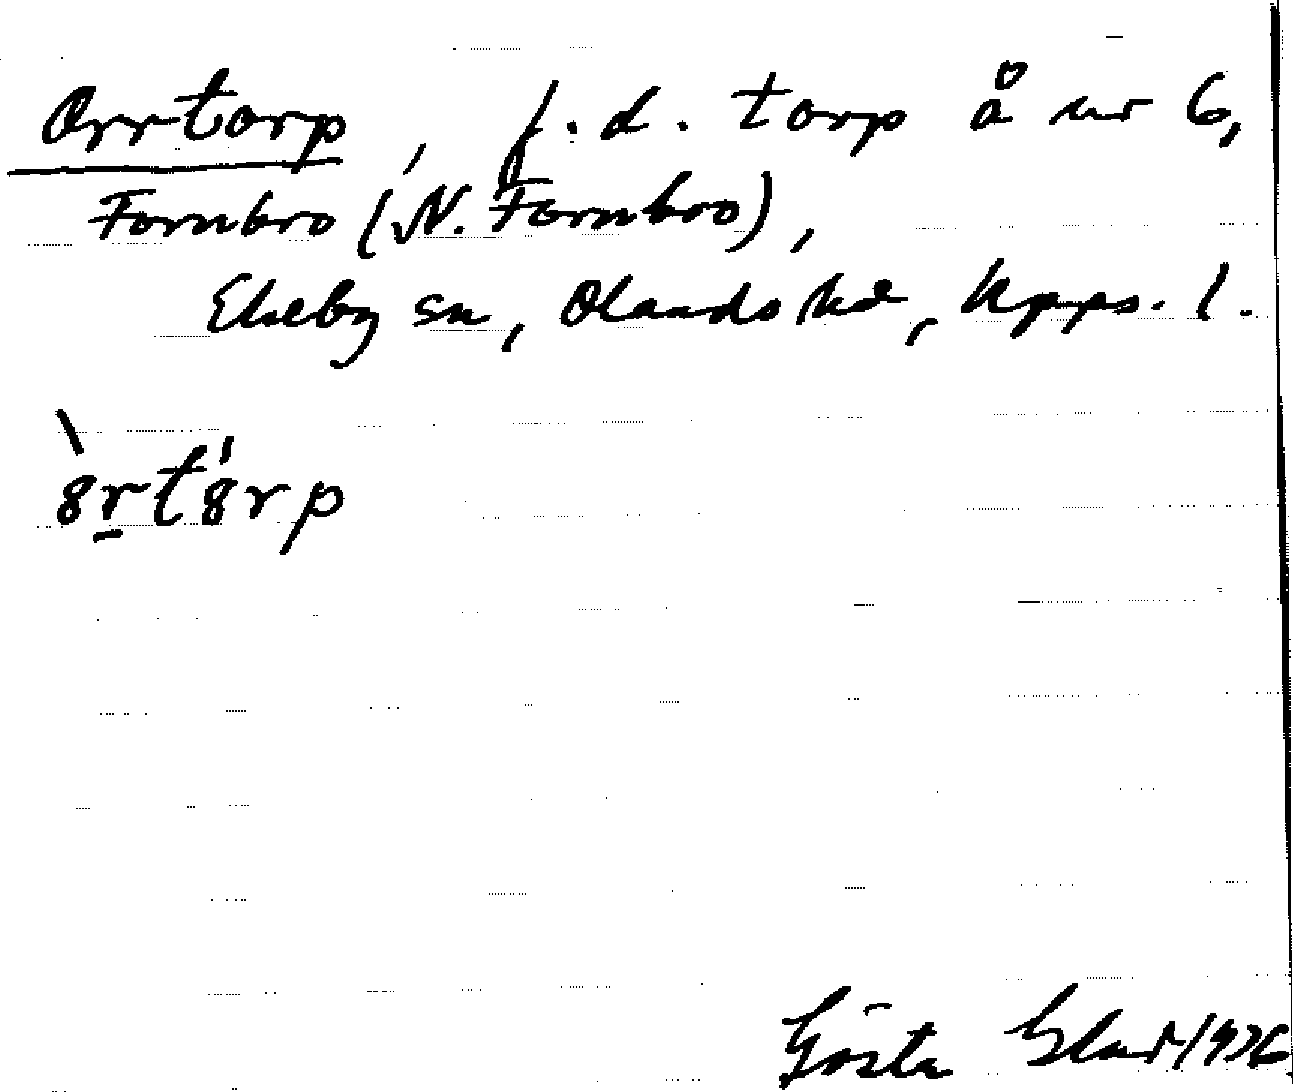 Orrtorp, f.d. torp å nr 6,
Fornbro (N. Fornbro),
Ekeby sn, Olands hd, Upps. l.
`8r̲t'8rp
Gösta